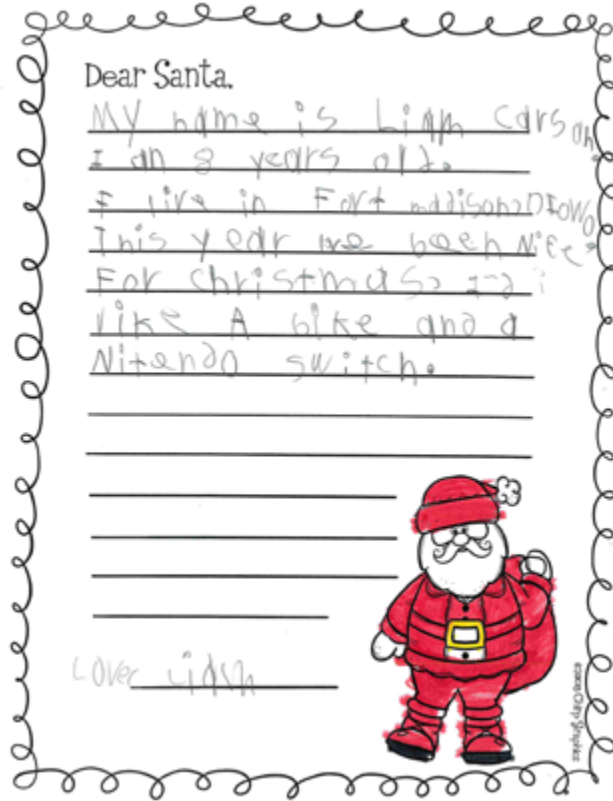 Dear Santa,
My name is Liam Carson.
I an 8 years old.
I live in Fort maddison, Iowa
This year ive been Nice.
For christmas,
like A bike and a
Nitendo switch.
Love, Liam